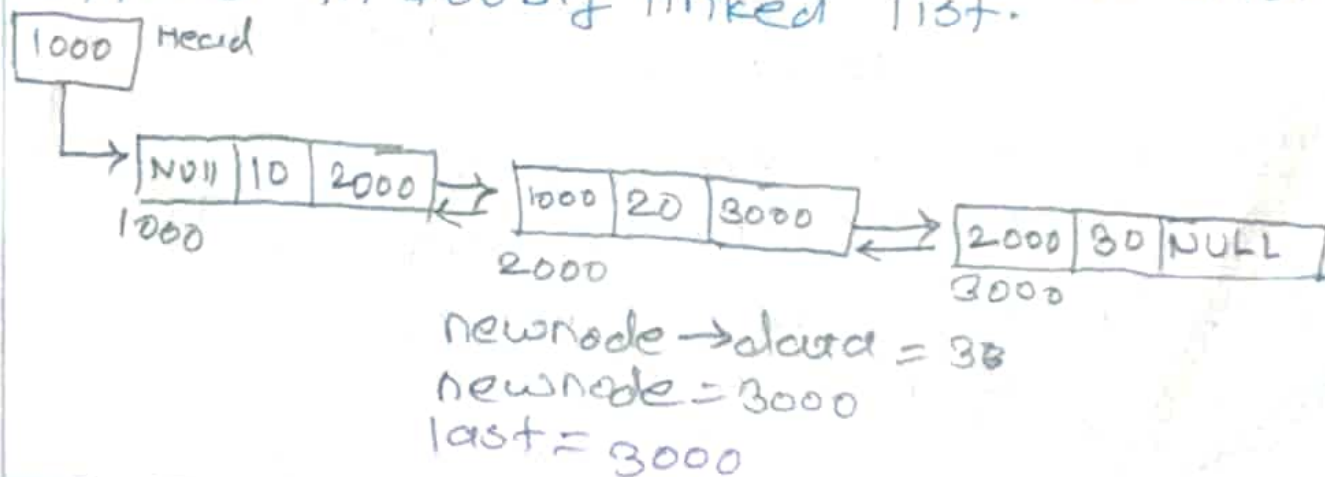 linked list.
1000 Head
NUll 10 2000
1000
1000 20 3000
2000
2000 30 NULL
3000
newnode → data = 30
newnode = 3000
last = 3000